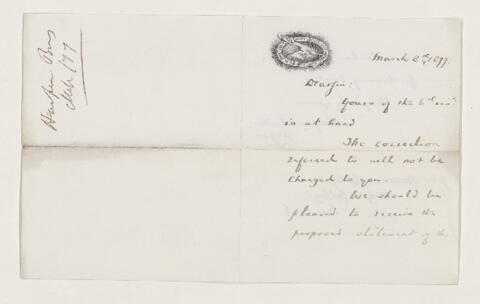 Harper Bros
Mch /77
March 8th, 1877.
Dear Sir:
Yours of the 6th inst
is at hand
The correction
referred to will not be
charged to you.
We should be
pleased to receive the
proposed statement of the